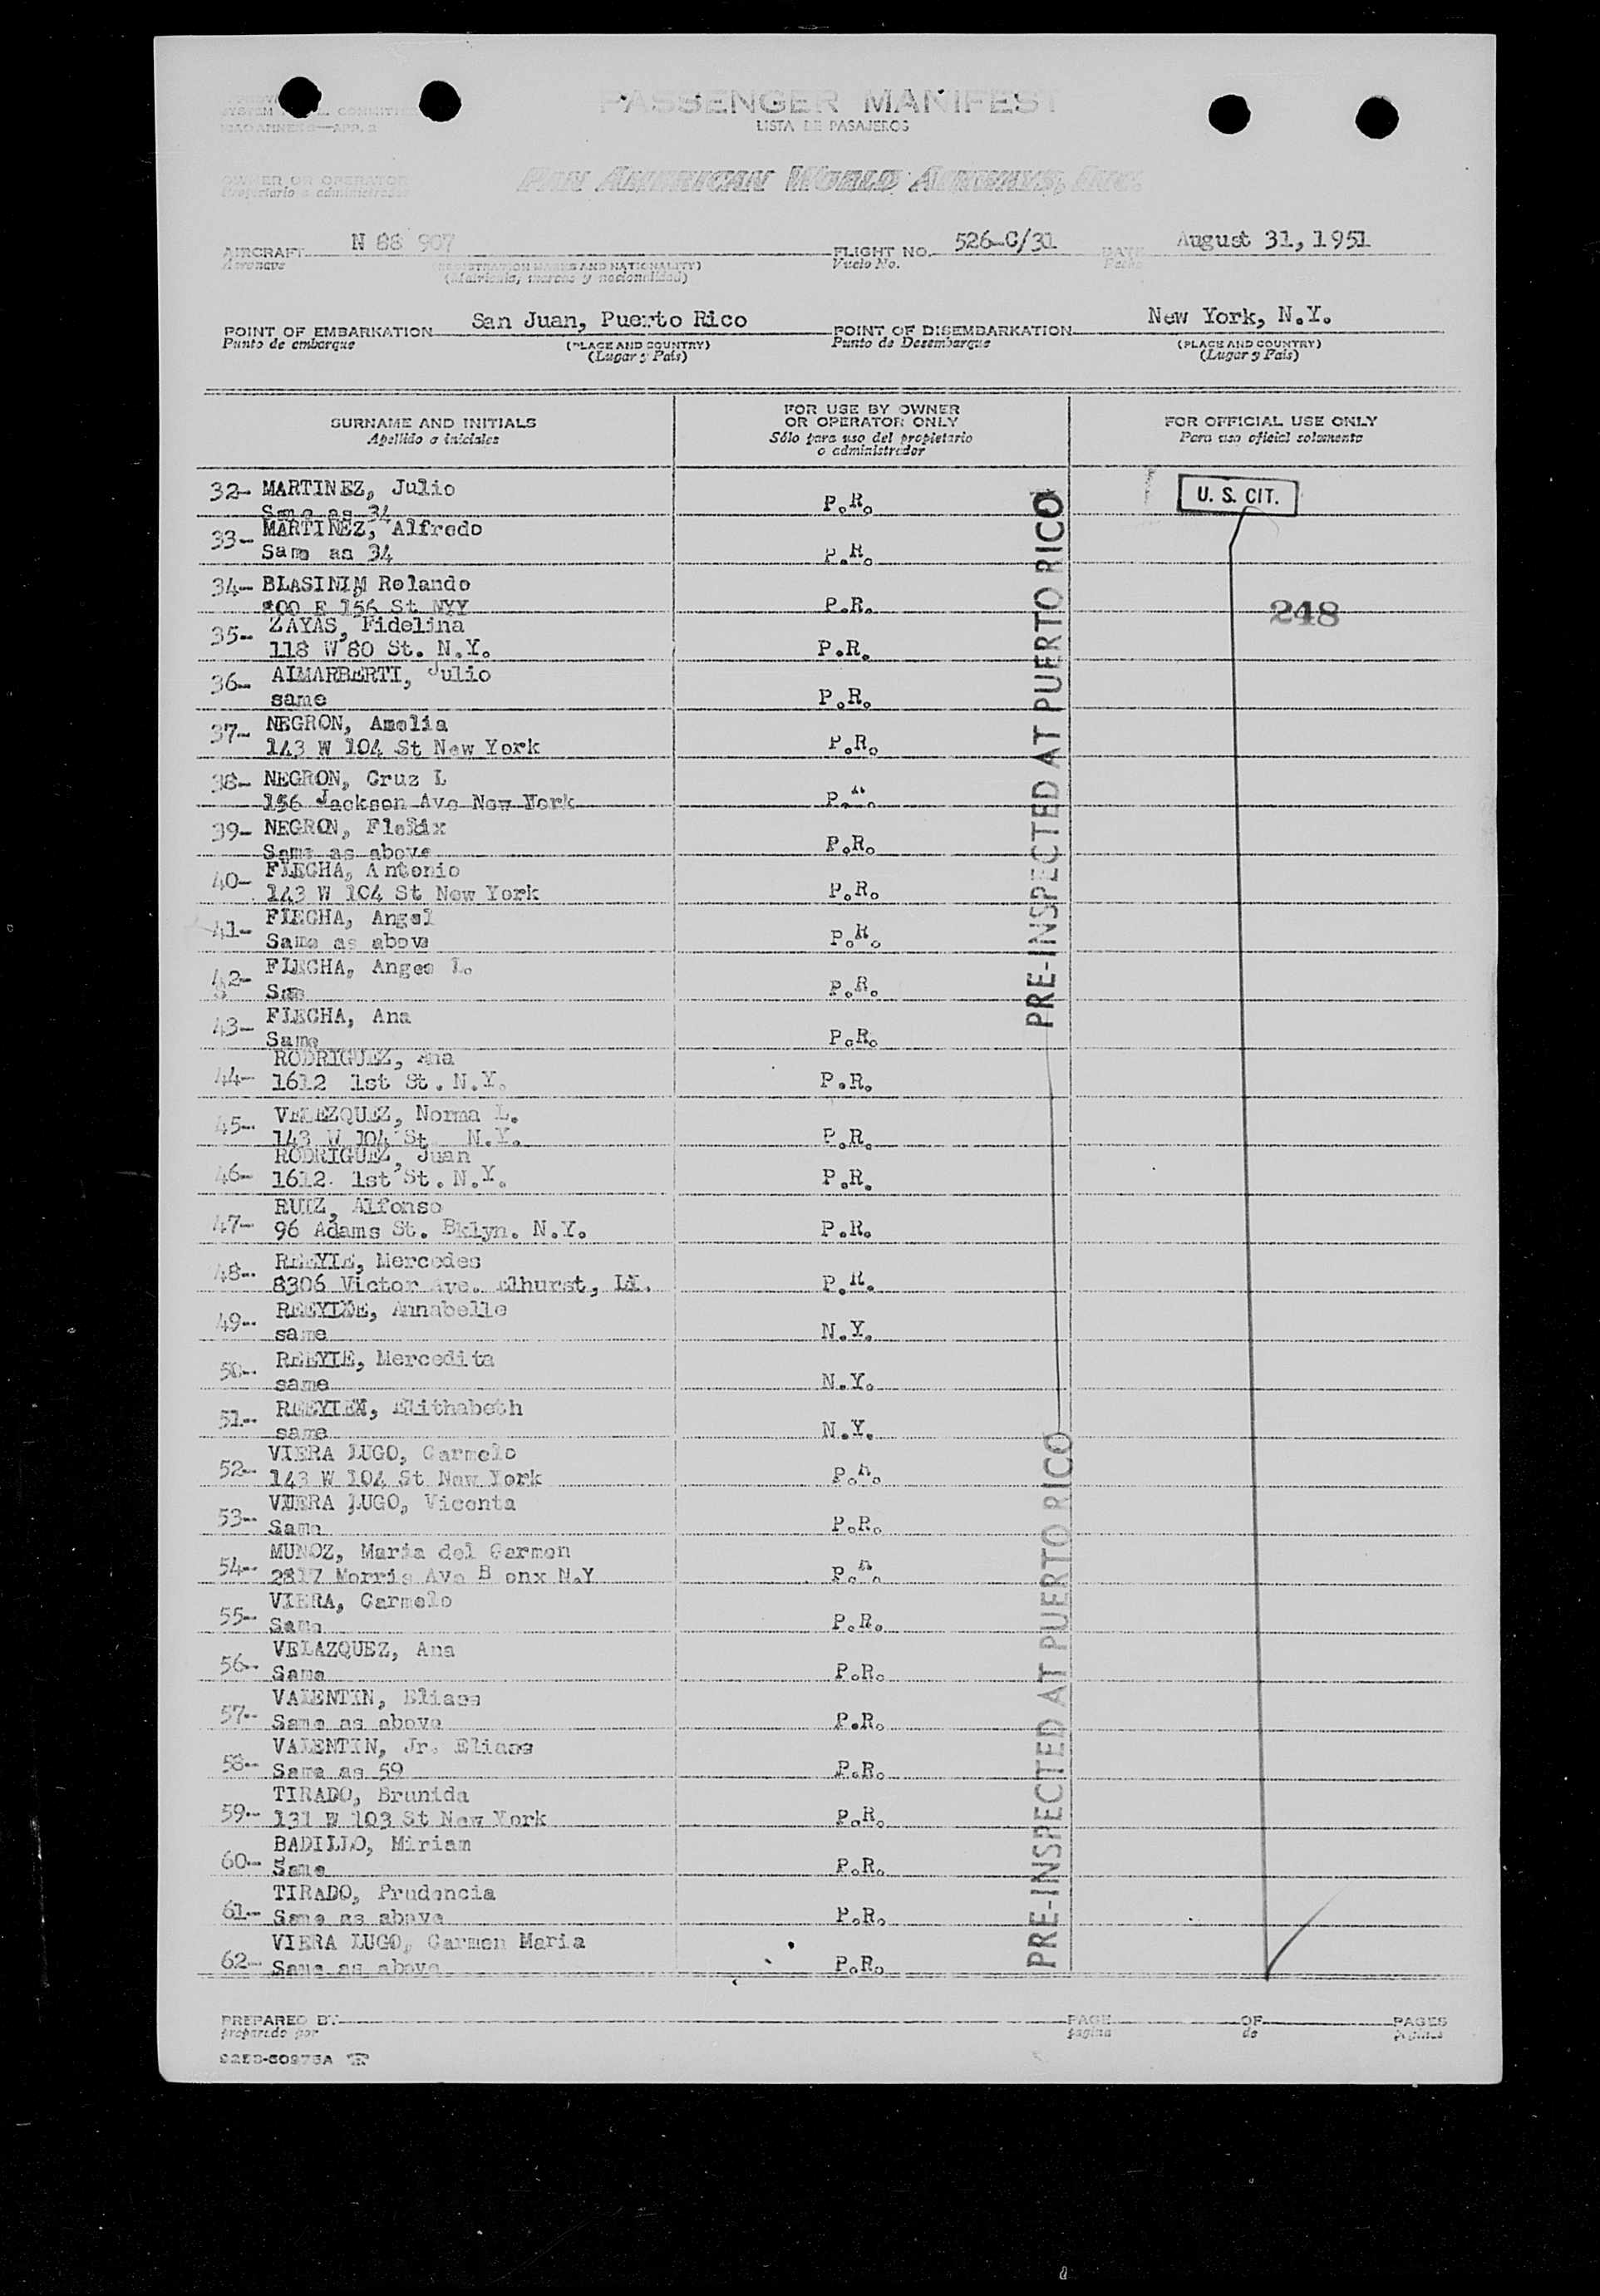 PASSENGER MANIFEST
LISTA DE PASAJEROS
ICAO ANNEX 9—APP. 2
OWNER OR OPERATOR
Propietario o administrador
PAN AMERICAN WORLD AIRWAYS, INC.
AIRCRAFT N 88 907 FLIGHT NO. 526-C/31 DATE August 31, 1951
Aeronave (REGISTRATION MARKS AND NATIONALITY) Vuelo No. Fecha
(Matrícula, marcas y nacionalidad)
POINT OF EMBARKATION San Juan, Puerto Rico POINT OF DISEMBARKATION New York, N.Y.
Punto de embarque (PLACE AND COUNTRY) Punto de Desembarque (PLACE AND COUNTRY)
(Lugar y País) (Lugar y País)
SURNAME AND INITIALS FOR USE BY OWNER OR OPERATOR ONLY FOR OFFICIAL USE ONLY
Apellido o iniciales Sólo para uso del propietario o administrador Para uso oficial solamente
32- MARTINEZ, Julio P.R. U. S. CIT.
Same as 34
33- MARTINEZ, Alfredo
Same as 34 P.R.
34- BLASINIM Rolando
800 E 156 St NYY P.R. 248
35- ZAYAS, Fidelina
118 W 80 St. N.Y. P.R.
36- AIMARBERTI, Julio
same P.R.
37- NEGRON, Amelia
143 W 104 St New York P.R.
38- NEGRON, Cruz L
156 Jackson Ave New York P.R.
39- NEGRON, Flelix
Same as above P.R.
40- FLECHA, Antonio
143 W 104 St New York P.R.
41- FLECHA, Angel
Same as above P.R.
42- FLECHA, Anges L.
Sam P.R.
43- FLECHA, Ana
Same P.R.
44- RODRIGUEZ, Ana
1612 1st St. N.Y. P.R.
45- VELEZQUEZ, Norma L.
143 W 104 St N.Y. P.R.
46- RODRIGUEZ, Juan
1612 1st St. N.Y. P.R.
47- RUIZ, Alfonso
96 Adams St. Bklyn. N.Y. P.R.
48- REEYLE, Mercedes
8306 Victor Ave. Elhurst, LI. P.R.
49- REEYLE, Annabelle
same N.Y.
50- REEYLE, Mercedita
same N.Y.
51- REEYLEM, Elithabeth
same N.Y.
52- VIERA LUGO, Carmelo
143 W 104 St New York P.R.
53- VIERA LUGO, Vicenta
Same P.R.
54- MUNOZ, Maria del Carmen
2817 Morris Ave B onx N.Y P.R.
55- VIERA, Carmelo
Same P.R.
56- VELAZQUEZ, Ana
Same P.R.
57- VALENTIN, Eliass
Same as above P.R.
58- VALENTIN, Jr. Eliass
Same as 59 P.R.
59- TIRADO, Brunida
131 W 103 St New York P.R.
60- BADILLO, Miriam
Same P.R.
61- TIRADO, Prudencia
Same as above P.R.
62- VIERA LUGO, Carmen Maria
Same as above P.R.
PRE-INSPECTED AT PUERTO RICO
PRE-INSPECTED AT PUERTO RICO
PREPARED BY PAGE OF PAGES
preparado por página de páginas